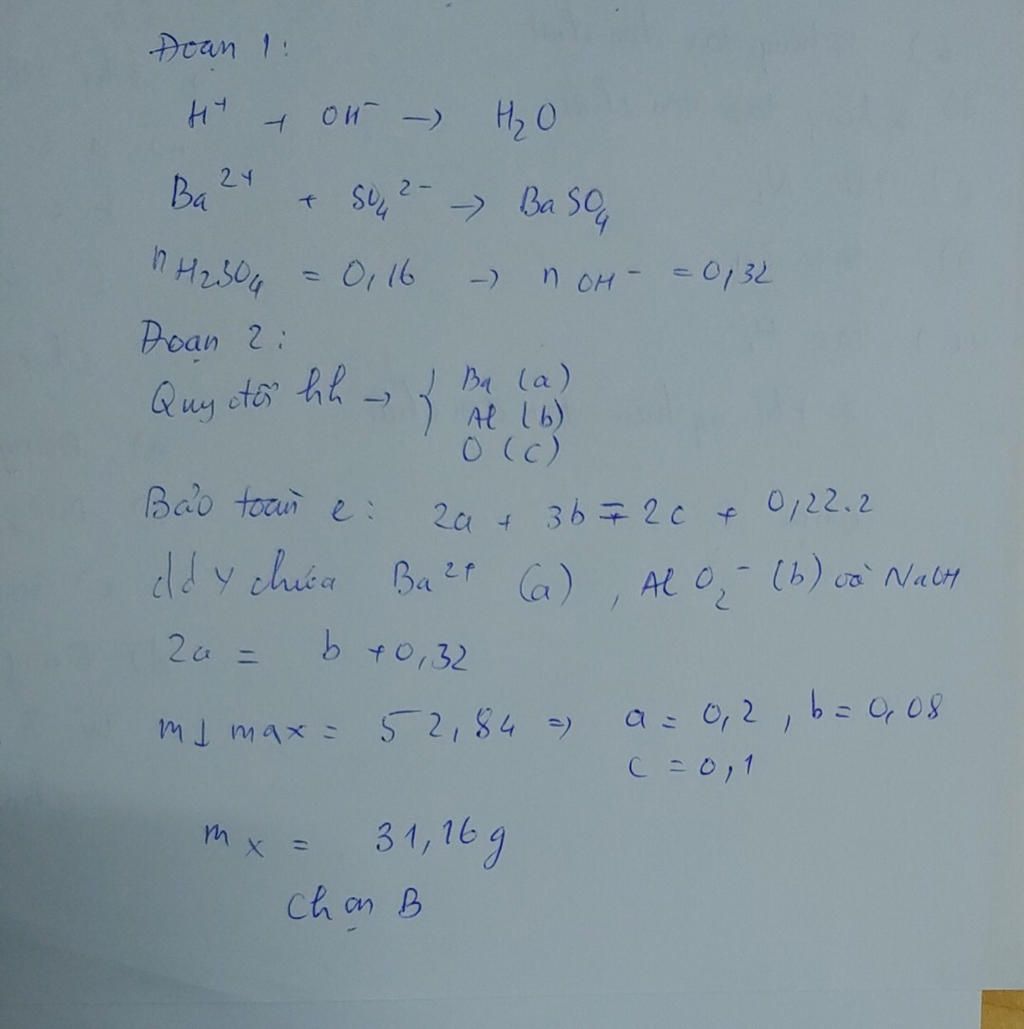 Đoạn 1:
H⁺ + OH⁻ → H₂O
Ba²⁺ + SO₄²⁻ → BaSO₄
nH₂SO₄ = 0,16 → nOH⁻ = 0,32
Đoạn 2:
Quy đổi hh → { Ba (a)
Al (b)
O (c)
Bảo toàn e: 2a + 3b = 2c + 0,22.2
dd Y chứa Ba²⁺ (a), AlO₂⁻ (b) và NaOH
2a = b + 0,32
m↓ max = 52,84 => a = 0,2, b = 0,08
c = 0,1
mx = 31,16g
Chọn B